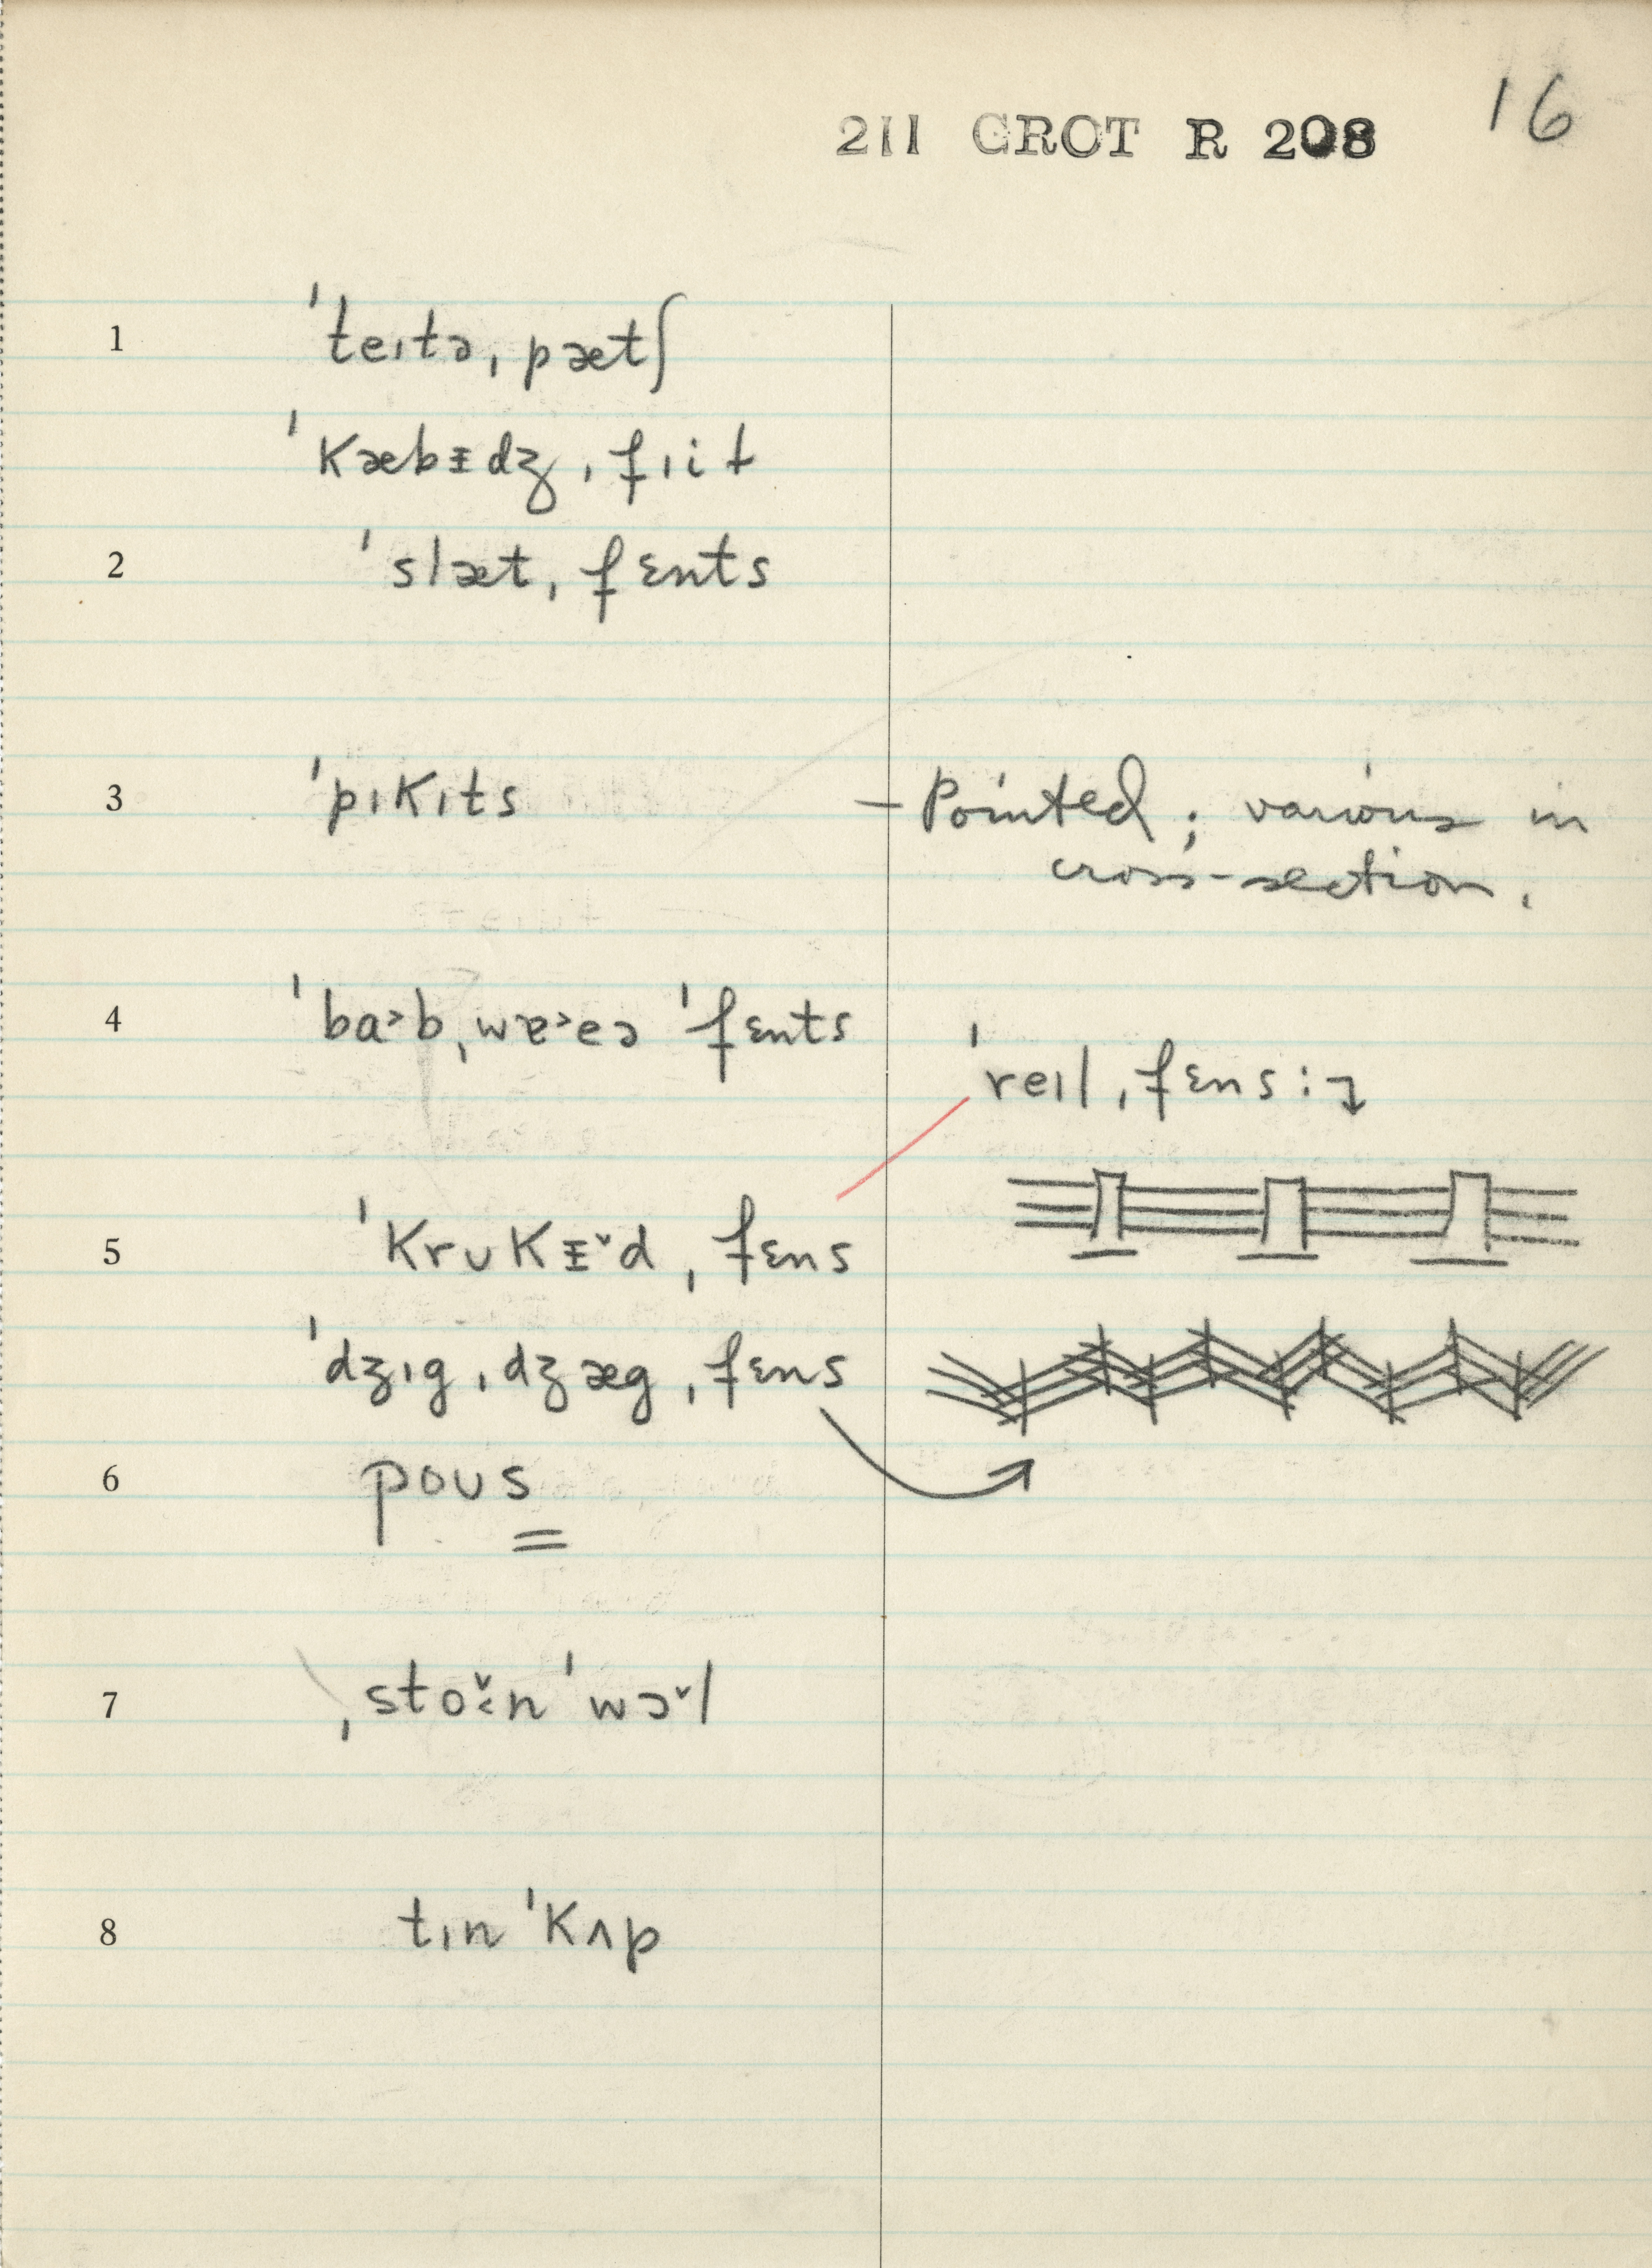 211 CROT R 208 16
1 ˈteɪtəˌpætʃ
ˈkæbᵻdʒˌfɪit
2 ˈslætˌfɛnts
3 ˈpɪkɪts — Pointed; various in
cross-section.
4 ˈba˃bˌwɐ˃eə ˈfɛnts
ˈreɪlˌfɛns:
5 ˈkrʊkᵻ˅dˌfɛns
ˈdʒɪgˌdʒægˌfɛns
6 poʊs
7 ˌsto˅:n ˈwɔ˅l
8 tɪn ˈkʌp